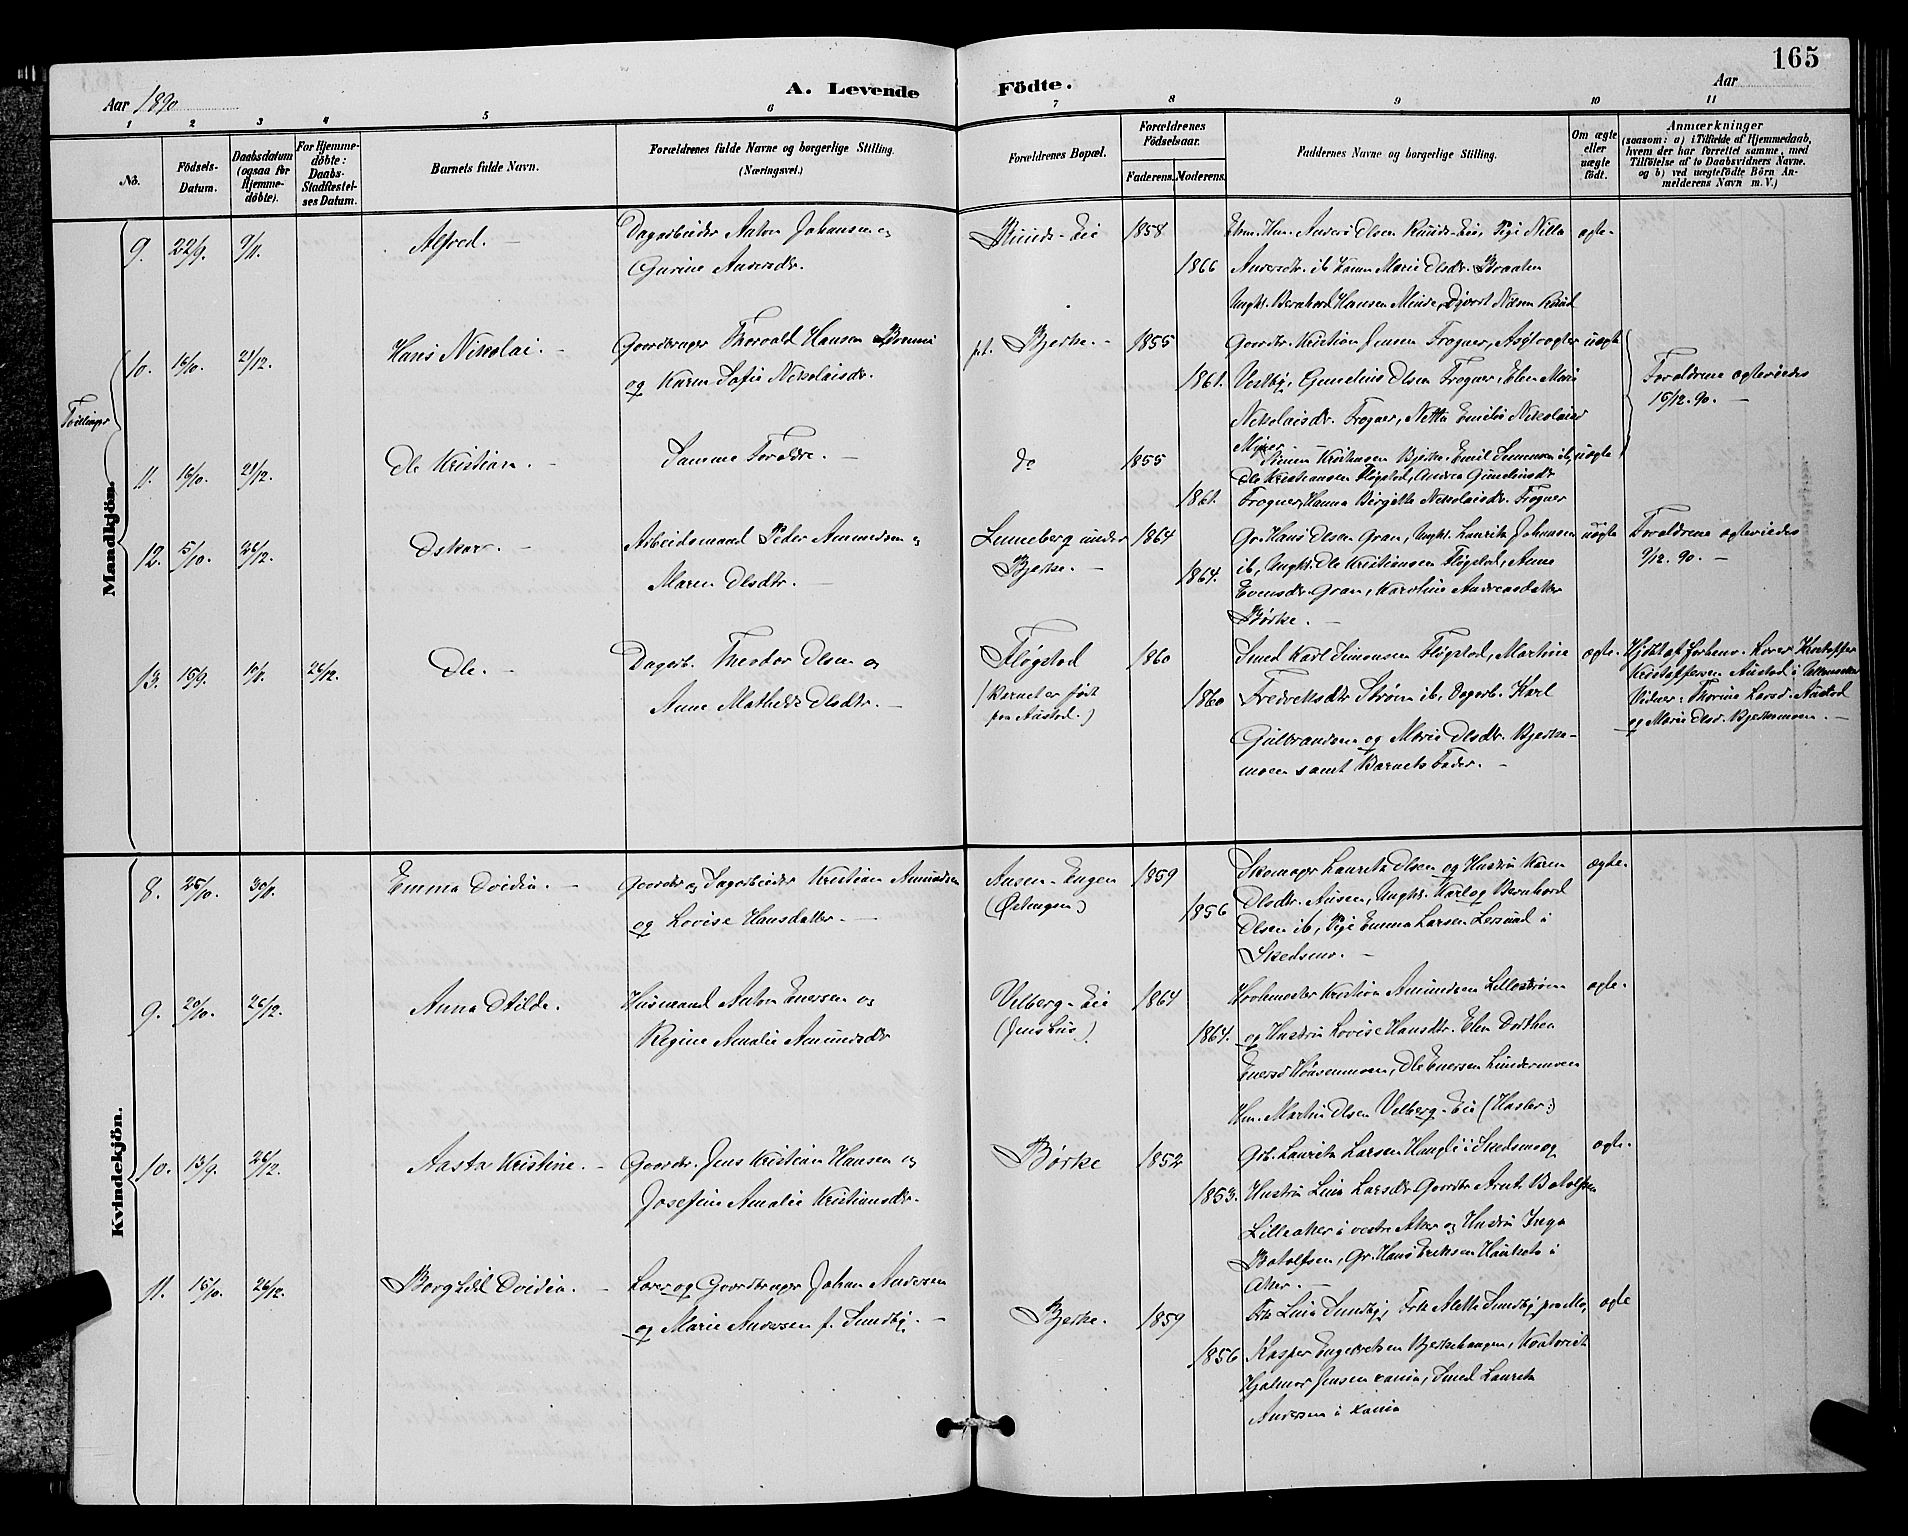 165
Aar 1890
A. Levende Födte.
Aar
1 2 3 4 5 6 7 8 9 10 11
No.
Födsels-Datum.
Daabsdatum (ogsaa for Hjemmedöbte).
For Hjemmedöbte: Daabs-Stadfæstelses Datum.
Barnets fulde Navn.
Forældrenes fulde Navne og borgerlige Stilling. (Næringsvei.)
Forældrenes Bopæl.
Forældrenes Födselsaar.
Faderens. Moderens.
Faddernes Navne og borgerlige Stilling.
Om ægte eller uægte født.
Anmærkninger
(saasom: a) i Tilfælde af Hjemmedaab, hvem der har forrettet samme, med Tilföielse af to Daabsvidners Navne. og b) ved uægtefödte Börn Anmelderens Navn m. V.)
Mandkjön.
9. 22/9. 9/11. Alfred. Dagarbeider Anton Johansen og
Gurine Andersdtr.
Ruuds-Eie 1858 1866
Anders Olsen Ruuds-Eie, Pige
Andersdtr. ib Karen Marie Olsdtr. Braaten
Ungk. Bernhard Hansen Minde, Nilsen Ruud
ægte
Tvillinger
10. 16/10. 21/12. Hans Nikolai. Gaardbruger Thorvald Hansen
og Karen Sofie Nikolaisdtr.
Bjerke. 1855 1861.
Gaardbr. Kristian Jensen Frogner,
Vestby, Gundelius Olsen Frogner, Elen Marie
Nikolaisdtr. Frogner, Netta Emilie Nikolaisd
uægte
Forældrene ægteviedes
15/12. 90.
11. 16/10. 21/12. Ole Kristian. Samme Forældre. do 1855 1861.
Simen Kristiansen Bjerke, Emil Simensen ib,
Ole Kristiansen Fløgstad, Andrea Gundeliusdtr
Frogner, Hanna Birgitte Nikolaisdtr. Frogner
uægte
12. 5/10. 26/12. Oskar. Arbeidsmand Peder Amundsen og
Maren Olsdtr.
Lunneberg under
Bjerke. 1864 1864.
Gr. Hans Olsen Gran, Ungk. Laurits Johansen
ib, Ungk. Ole Kristiansen Fløgstad, Anne
Evensdtr. Gran, Karoline Andreasdatter
Børke.
uægte
Forældrene ægteviedes
9/12. 90.
13. 15/9. 10/11. 26/12. Ole. Dagarb. Theodor Olsen og
Anne Mathilde Olsdtr.
Fløgstad
(Barnet er født
paa Austad.)
1860 1860
Smed Karl Simensen Fløgstad, Martine
Fredriksdtr Strøm ib, Dagarb. Karl
Gulbrandsen og Marie Olsdtr. Bjerke-
moen samt Barnets Fader.
ægte.
Hjdbt af forhenv. Lærer Kristoffer
Kristoffersen Austad i Ullensaker
Vidner: Thorine Larsd. Austad
og Marie Olsd. Bjerkemoen.
Kvindekjön.
8. 25/10. 30/11. Emma Ovidia. Gaardbr og Dagarbeider Kristian Amundsen
og Lovise Hansdatter.
Ausen-Engen
(Østengen)
1859 1856
Skomager Laurits Olsen og Hustru Karen
Olsdtr. Ausen, Ungk. Karl og Bernhard
Olsen ib, Pige Emma Larsen i
Skedsmo.
ægte.
9. 20/10. 26/12. Anna Otilde. Husmand Anton Enersen og
Regine Amalie Amundsdtr
Velberg-Eie
(Jenshus)
1864 1864.
Kristian Amundsen Lillestrøm
og Hustru Lovise Hansdtr. Elen Dorthea
Enersd Ole Enersen Lundermoen
Hm. Martin Olsen Velberg-Eie (Hasler)
ægte.
10. 13/9. 26/12. Aasta Kristine. Gaardbr. Jens Kristian Hansen og
Josefine Amalie Kristiansdtr.
Børke 1852 1853.
Grb. Laurits Larsen Haugli i Skedsmo og
Hustru Lina Larsdtr Gaardbr Arnt Botolfsen
Lilleaker i vestre Aker og Hustru Inga
Botolfsen, Gr. Hans Eriksen i
Aker.
ægte.
11. 15/10. 26/12. Borghild Ovidia. Lærer og Gaardbruger Johan Andersen
og Marie Andersen f. Sundby.
Bjerke. 1859 1856
Frk Lina Sundby, Frk Alette Sundby, paa Mo,
Kasper Engebretsen Bjerkehaugen,
Hjalmar Jensen xania, Smed Laurits
Andersen i Xania
ægte